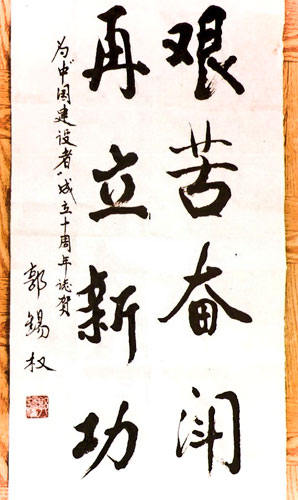 艰苦奋斗
再立新功
为《中国建设者》成立十周年志贺
郭锡权